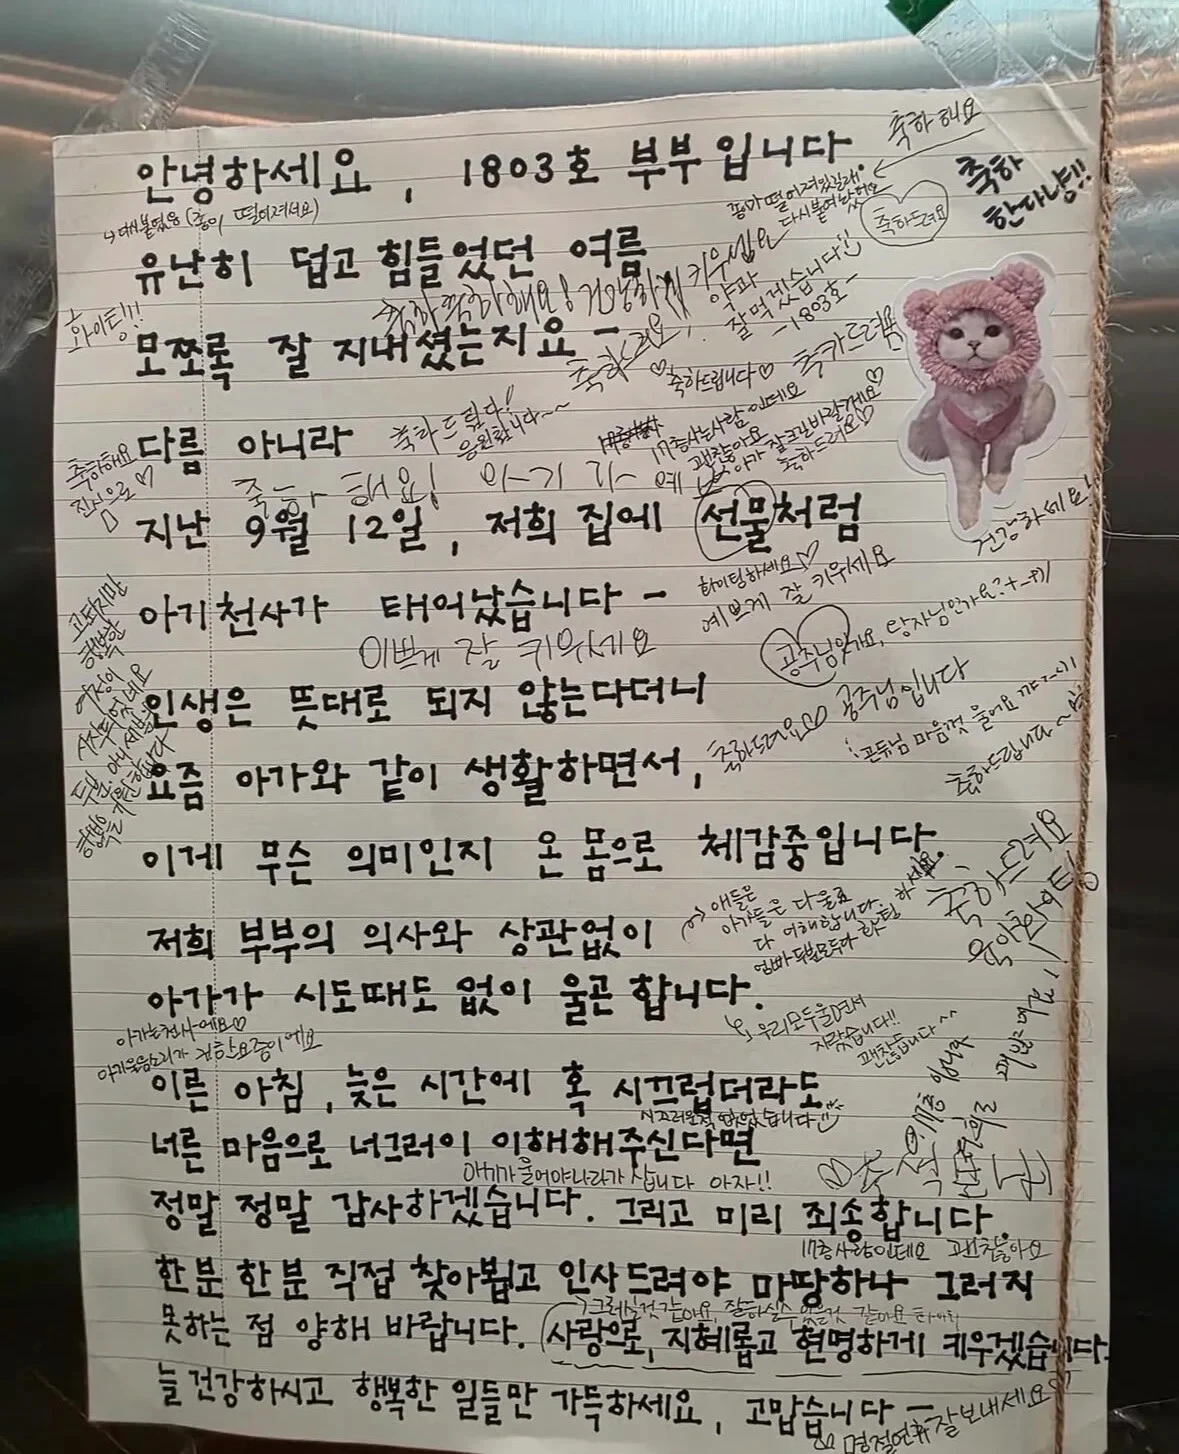 안녕하세요, 1803호 부부입니다.
축하해요
축하
한다냥!!
다시붙였음 (종이 떨어져서요)
떨어져있길래!
다시붙여놨어요
축하드려요
유난히 덥고 힘들었던 여름
축하 축하해요! 건강하게 키우십쇼
약과
잘 먹겠습니다
-1803호-
화이팅!!!
모쪼록 잘 지내셨는지요 -
축하드려요
♡축하드립니다♡
축하드려요
다름 아니라
축하드립니다!
응원합니다~~
17층사는사람인데요
괜찮아요
아가 잘 크길바랄게요♡
축하드려요♡
축하해요
진심으로♡
축하해요!
지난 9월 12일, 저희 집에 선물처럼
건강하세요!
아기천사가 태어났습니다 -
화이팅하세요♡
예쁘게 잘 키우세요
이쁘게 잘 키우세요
공주님인가요, 왕자님인가요?
고되지만
행복한
여정이
시작되었네요
두분, 아니 세분의
행복을 기원합니다
인생은 뜻대로 되지 않는다더니
축하드려요♡
공주님입니다
공듀님 마음껏 울어요
축하드립니다~
요즘 아가와 같이 생활하면서,
이게 무슨 의미인지 온 몸으로 체감중입니다.
축하드려요
육아화이팅
저희 부부의 의사와 상관없이
애들은
아가들은 다 울죠
다 이해합니다.
엄빠 두분모두다 화팅 하세요.
아가가 시도때도 없이 울곤 합니다.
아가는천사에요♡
아기울음소리가 귀한요즘이에요
우리모두울면서
자랐습니다!!
괜찮습니다^^
이른 아침, 늦은 시간에 혹 시끄럽더라도
시끄러운적 없었습니다
너른 마음으로 너그러이 이해해주신다면
아기가울어야나라가 삽니다 아자!!
정말 정말 감사하겠습니다. 그리고 미리 죄송합니다.
17층사람인데요 괜찮아요
한분 한분 직접 찾아뵙고 인사드려야 마땅하나 그러지
그러실것같아요, 잘하실수있을것 같아요
못하는 점 양해 바랍니다. 사랑으로, 지혜롭고 현명하게 키우겠습니다.
늘 건강하시고 행복한 일들만 가득하세요, 고맙습니다 -
명절연휴잘보내세요